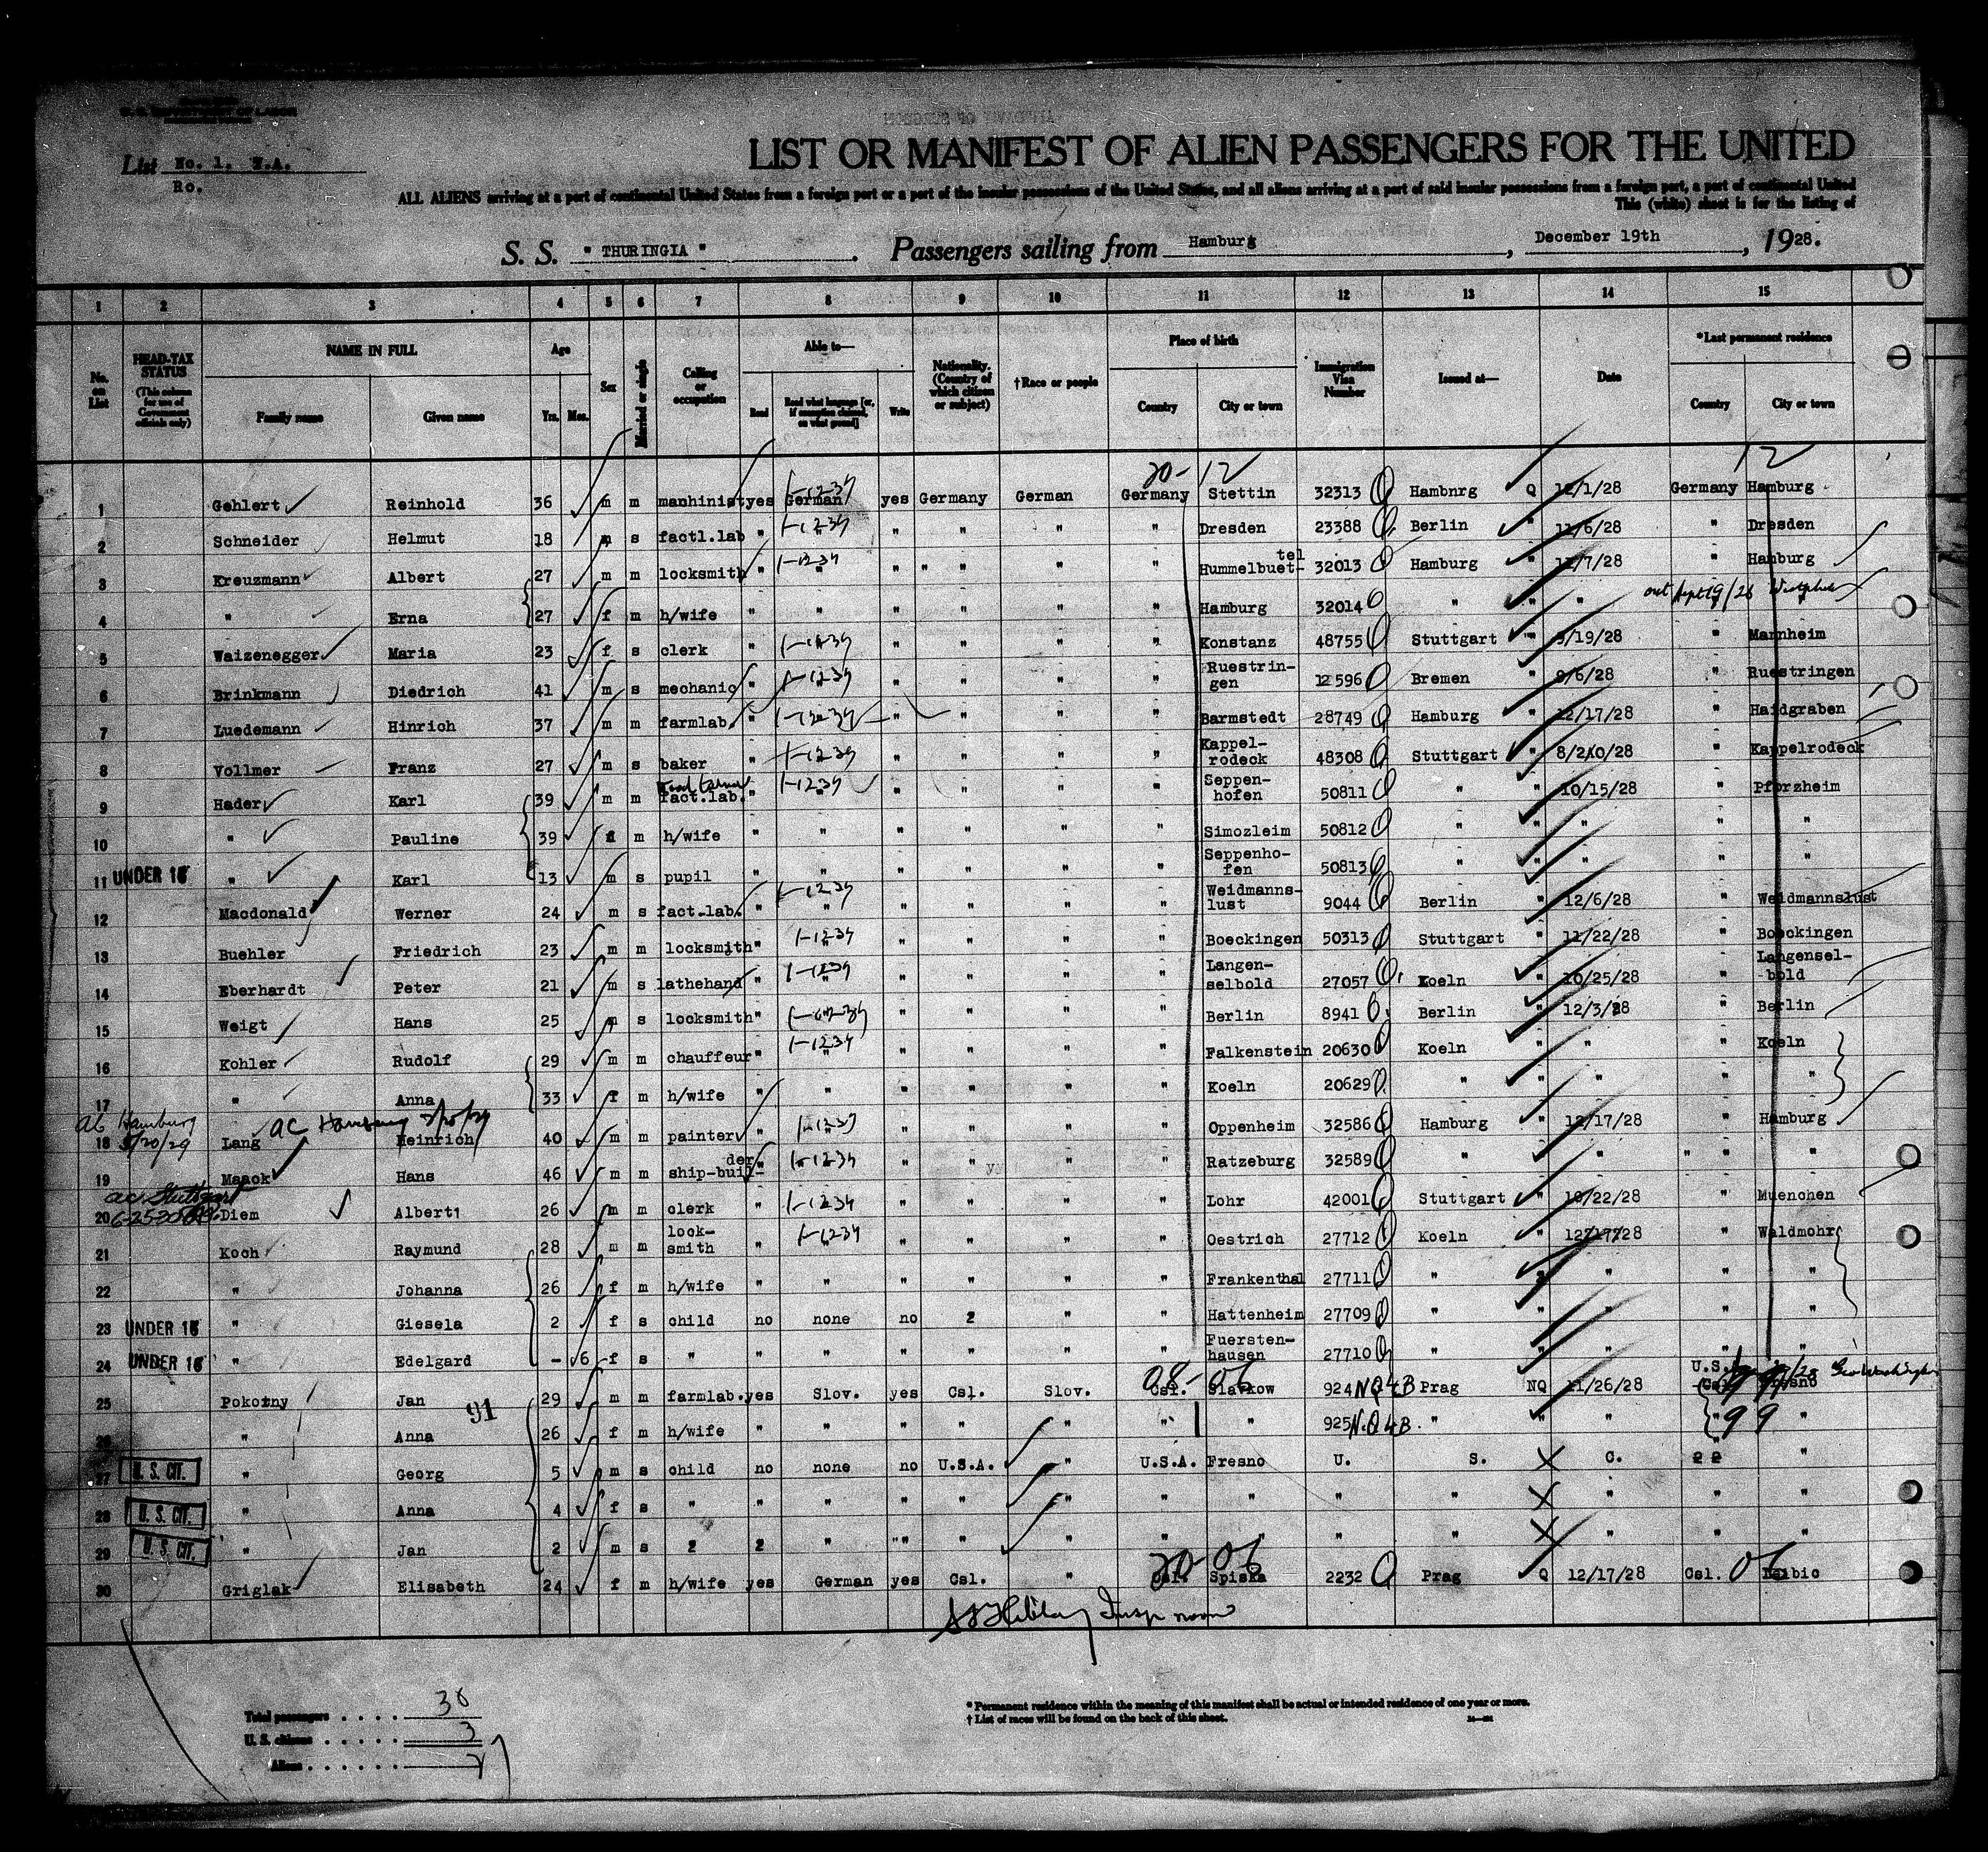 List No. 1. W.A.
Ro.
LIST OR MANIFEST OF ALIEN PASSENGERS FOR THE UNITED
ALL ALIENS arriving at a port of continental United States from a foreign port or a port of the insular possessions of the United States, and all aliens arriving at a port of said insular possessions from a foreign port, a port of continental United
This (white) sheet is for the listing of
S. S. " THURINGIA " . Passengers sailing from Hamburg , December 19th , 1928.
1 2 3 4 5 6 7 8 9 10 11 12 13 14 15
No. on List HEAD-TAX STATUS (This column for use of Government officials only) NAME IN FULL Family name Given name Age Yrs. Mos. Sex Married or single Calling or occupation Able to— Read Read what language [or, if exemption claimed, on what ground] Write Nationality. (Country of which citizen or subject) †Race or people Place of birth Country City or town Immigration Visa Number Issued at— Date *Last permanent residence Country City or town
20-12 12
1 Gehlert Reinhold 36 m m manhinist yes German yes Germany German Germany Stettin 32313 Hambnrg Q 12/1/28 Germany Hamburg
2 Schneider Helmut 18 m s factl.lab " " " " " Dresden 23388 Berlin " 11/6/28 " Dresden
3 Kreuzmann Albert 27 m m locksmith " " " " " " Hummelbuet-tel 32013 Hamburg " 12/7/28 " Hamburg
4 " Erna 27 f m h/wife " " " " " " Hamburg 32014 " " "
5 Waizenegger Maria 23 f s clerk " " " " " Konstanz 48755 Stuttgart " 9/19/28 " Mannheim
6 Brinkmann Diedrich 41 m s mechanic " " " " " Ruestrin-gen 12596 Bremen 9/6/28 " Ruestringen
7 Luedemann Hinrich 37 m m farmlab. " " " " " Barmstedt 28749 Hamburg " 12/17/28 " Haidgraben
8 Vollmer Franz 27 m s baker " " " " " Kappel-rodeck 48308 Stuttgart " 8/20/28 " Kappelrodeck
9 Hader Karl 39 m m fact.lab. " " " " " " Seppen-hofen 50811 " " 10/15/28 " Pforzheim
10 " Pauline 39 f m h/wife " " " " " " Simozleim 50812 " " " " "
11 UNDER 16 " Karl 13 m s pupil " " " " " " Seppenho-fen 50813 " " " " "
12 Macdonald Werner 24 m s fact.lab. " " " " " " Weidmanns-lust 9044 Berlin " 12/6/28 " Weidmannslust
13 Buehler Friedrich 23 m m locksmith " " " " " " Boeckingen 50313 Stuttgart " 11/22/28 " Boeckingen
14 Eberhardt Peter 21 m s lathehand " " " " " " Langen-selbold 27057 Koeln " 10/25/28 " Langensel-bold
15 Weigt Hans 25 m s locksmith " " " " " Berlin 8941 Berlin " 12/3/28 " Berlin
16 Kohler Rudolf 29 m m chauffeur " " " " " " Falkenstein 20630 Koeln " " " Koeln
17 " Anna 33 f m h/wife " " " " " " Koeln 20629 " " " " "
ac Hamburg 3/20/29
18 Lang ac Hamburg 3/20/29 Heinrich 40 m m painter " " " " " Oppenheim 32586 Hamburg " 12/17/28 " Hamburg
19 Maack Hans 46 m m ship-buil-der " " " " " Ratzeburg 32589 " " " " "
ac Stuttgart
20 Diem Albert1 26 m m clerk " " " " " Lohr 42001 Stuttgart " 10/22/28 " Muenchen
21 Koch Raymund 28 m m lock-smith " " " " " " Oestrich 27712 Koeln " 12/17/28 " Waldmohr
22 " Johanna 26 f m h/wife " " " " " " Frankenthal 27711 " " " " "
23 UNDER 16 " Giesela 2 f s child no none no 2 " " Hattenheim 27709 " " " " "
24 UNDER 16 " Edelgard - 6 f s " " " " " " " Fuersten-hausen 27710 " " " " "
25 Pokorny Jan 29 m m farmlab. yes Slov. yes Csl. Slov. Csl. Slavkow 924 NQ4B Prag NQ 11/26/28 U.S.
91
26 " Anna 26 f m h/wife " " " " " " " 925 N.Q4B. " " " " 99 "
27 U. S. CIT. " Georg 5 m s child no none no U.S.A. " U.S.A. Fresno U. S. C. "
28 U. S. CIT. " Anna 4 f s " " " " " " " " " " " " "
29 U. S. CIT. " Jan 2 m s 2 2 " " " " " " " " " " " "
30 Griglak Elisabeth 24 f m h/wife yes German yes Csl. " 20-06 Spiska 2232 Prag Q 12/17/28 Csl. 06
Total passengers . . . . 30
U. S. citizens . . . . . 3
Aliens . . . . . . 27
* Permanent residence within the meaning of this manifest shall be actual or intended residence of one year or more.
† List of races will be found on the back of this sheet.